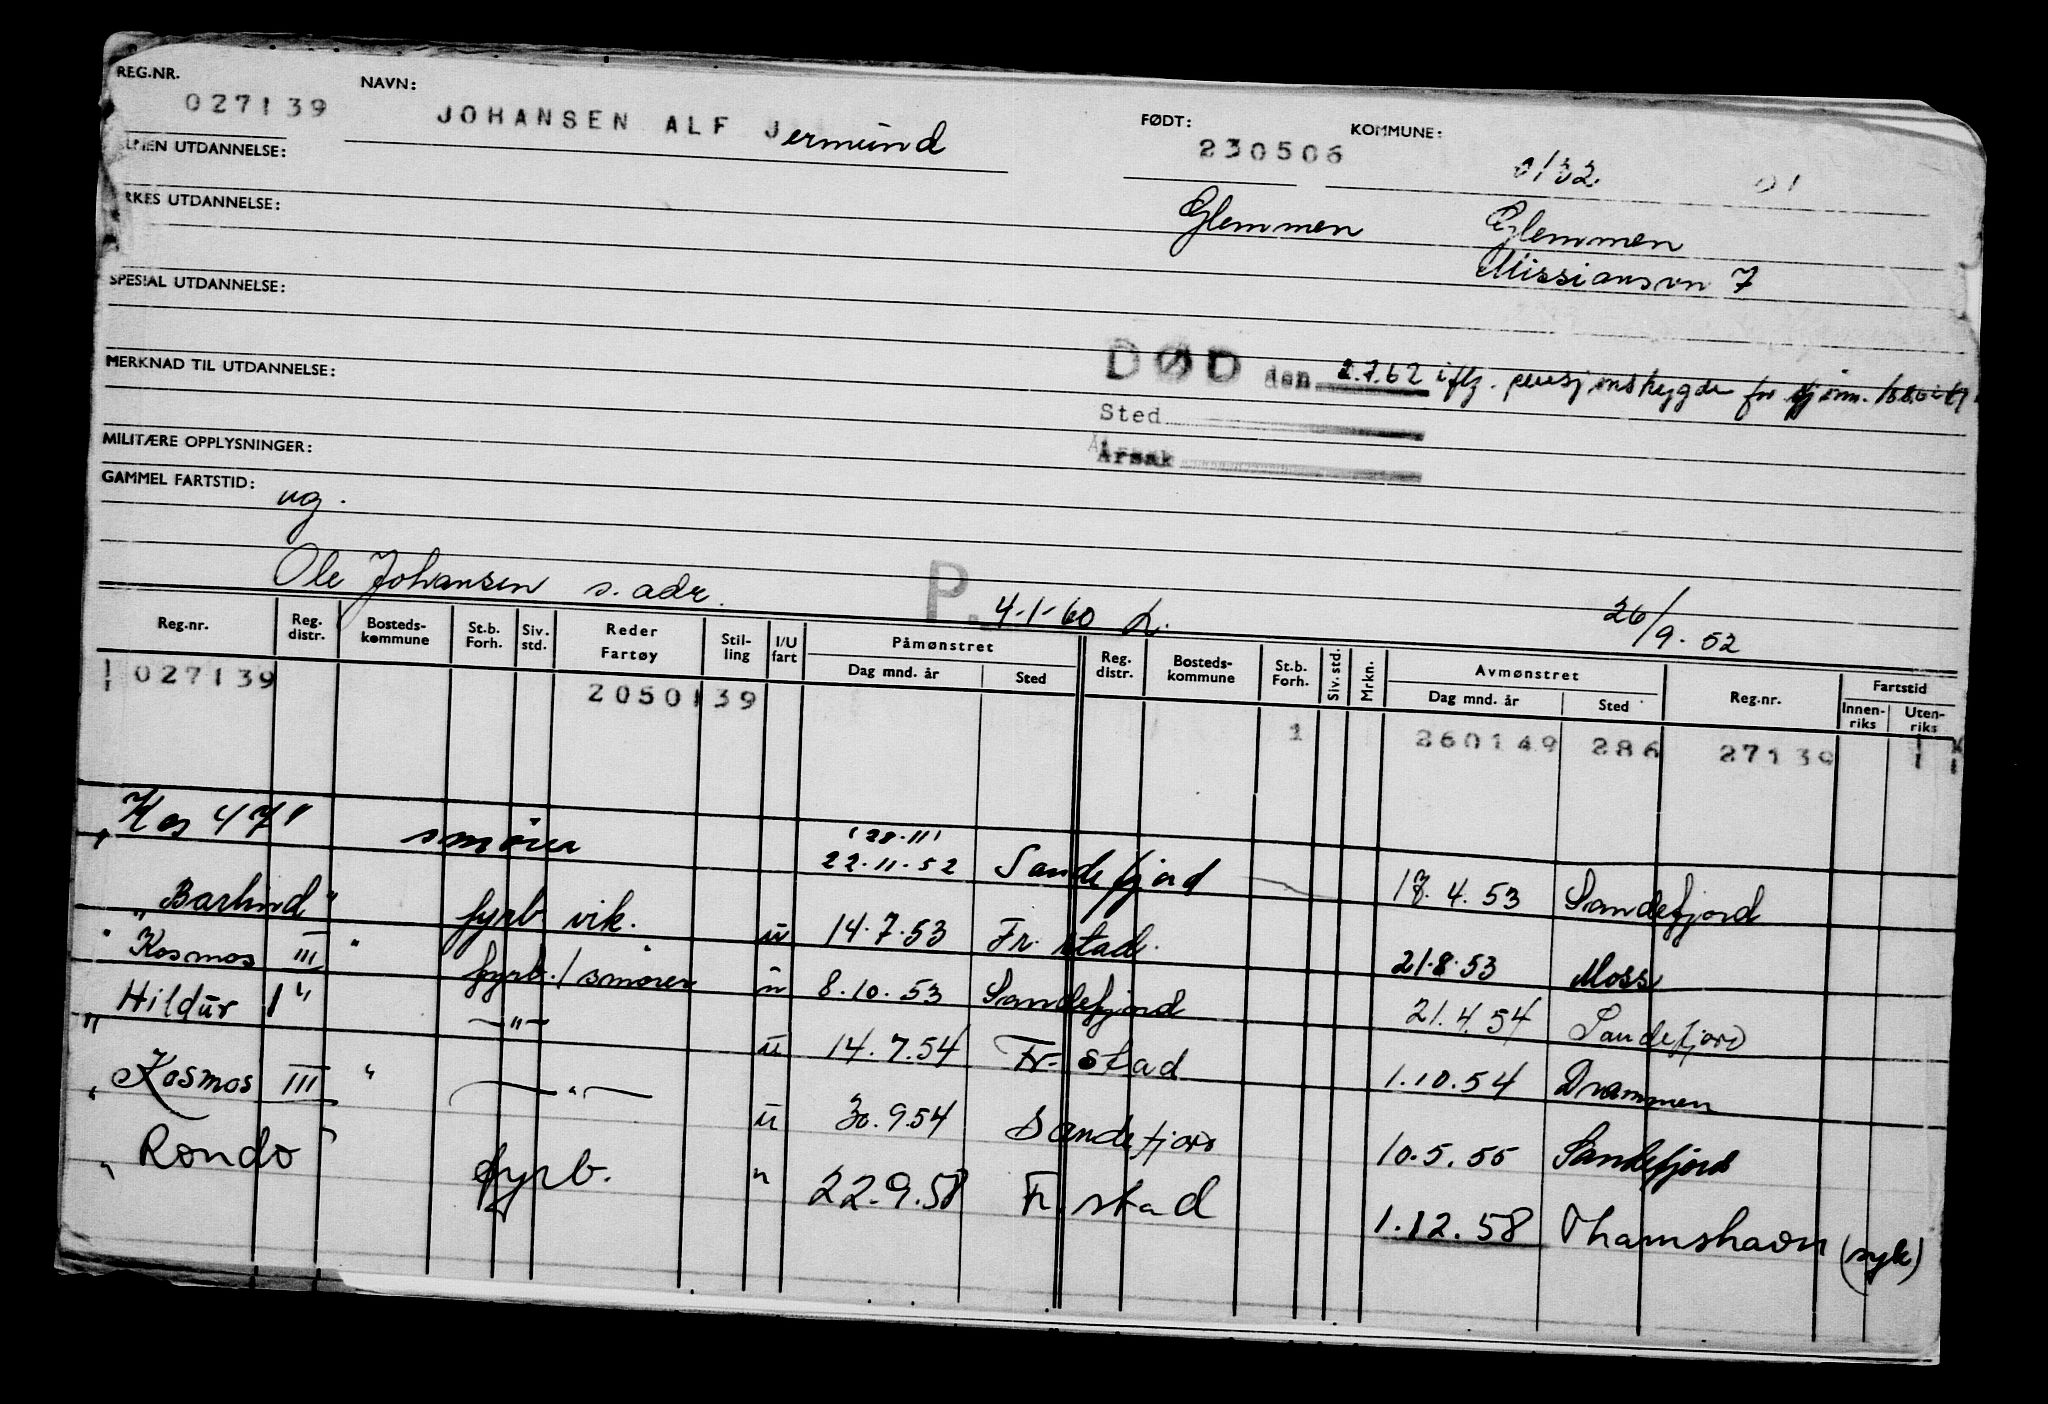 REG.NR. NAVN: FØDT: KOMMUNE:
027139 JOHANSEN ALF Jermund 230506 0132
UTDANNELSE:
Glemmen Glemmen
UTDANNELSE:
Missionsvn 7
SPESIAL UTDANNELSE:
DØD den 2.7.62 iflg. pensjonstrygden for sjøm.
MERKNAD TIL UTDANNELSE:
Sted
MILITÆRE OPPLYSNINGER:
Årsak
GAMMEL FARTSTID:
ug.
Ole Johansen s. adr. P. 4-1-60 L. 26/9.52
Reg.nr. Reg. distr. Bosteds- kommune St.b. Forh. Siv. std. Reder Fartøy Stil- ling I/U fart Påmønstret Dag mnd. år Sted Reg. distr. Bosteds- kommune St.b. Forh. Siv. std. Mrkn. Avmønstret Dag mnd. år Sted Reg.nr. Fartstid Innen- riks Uten- riks
027139 2050139 1 260149 286 27139
"Kos 47" smører (28.11) 22.11.52 Sandefjord 17.4.53 Sandefjord
"Barlind" fyrb vik. u 14.7.53 Fr. stad. 21.8.53 Moss
"Kosmos III" fyrb./smører u 8.10.53 Sandefjord 21.4.54 Sandefjord
"Hildur I" —"— u 14.7.54 Fr.stad 1.10.54 Drammen
"Kosmos III" —"— u 30.9.54 Sandefjord 10.5.55 Sandefjord
"Rondo" fyrb. " 22.9.58 Fr.stad 1.12.58 Thamshavn (syk)